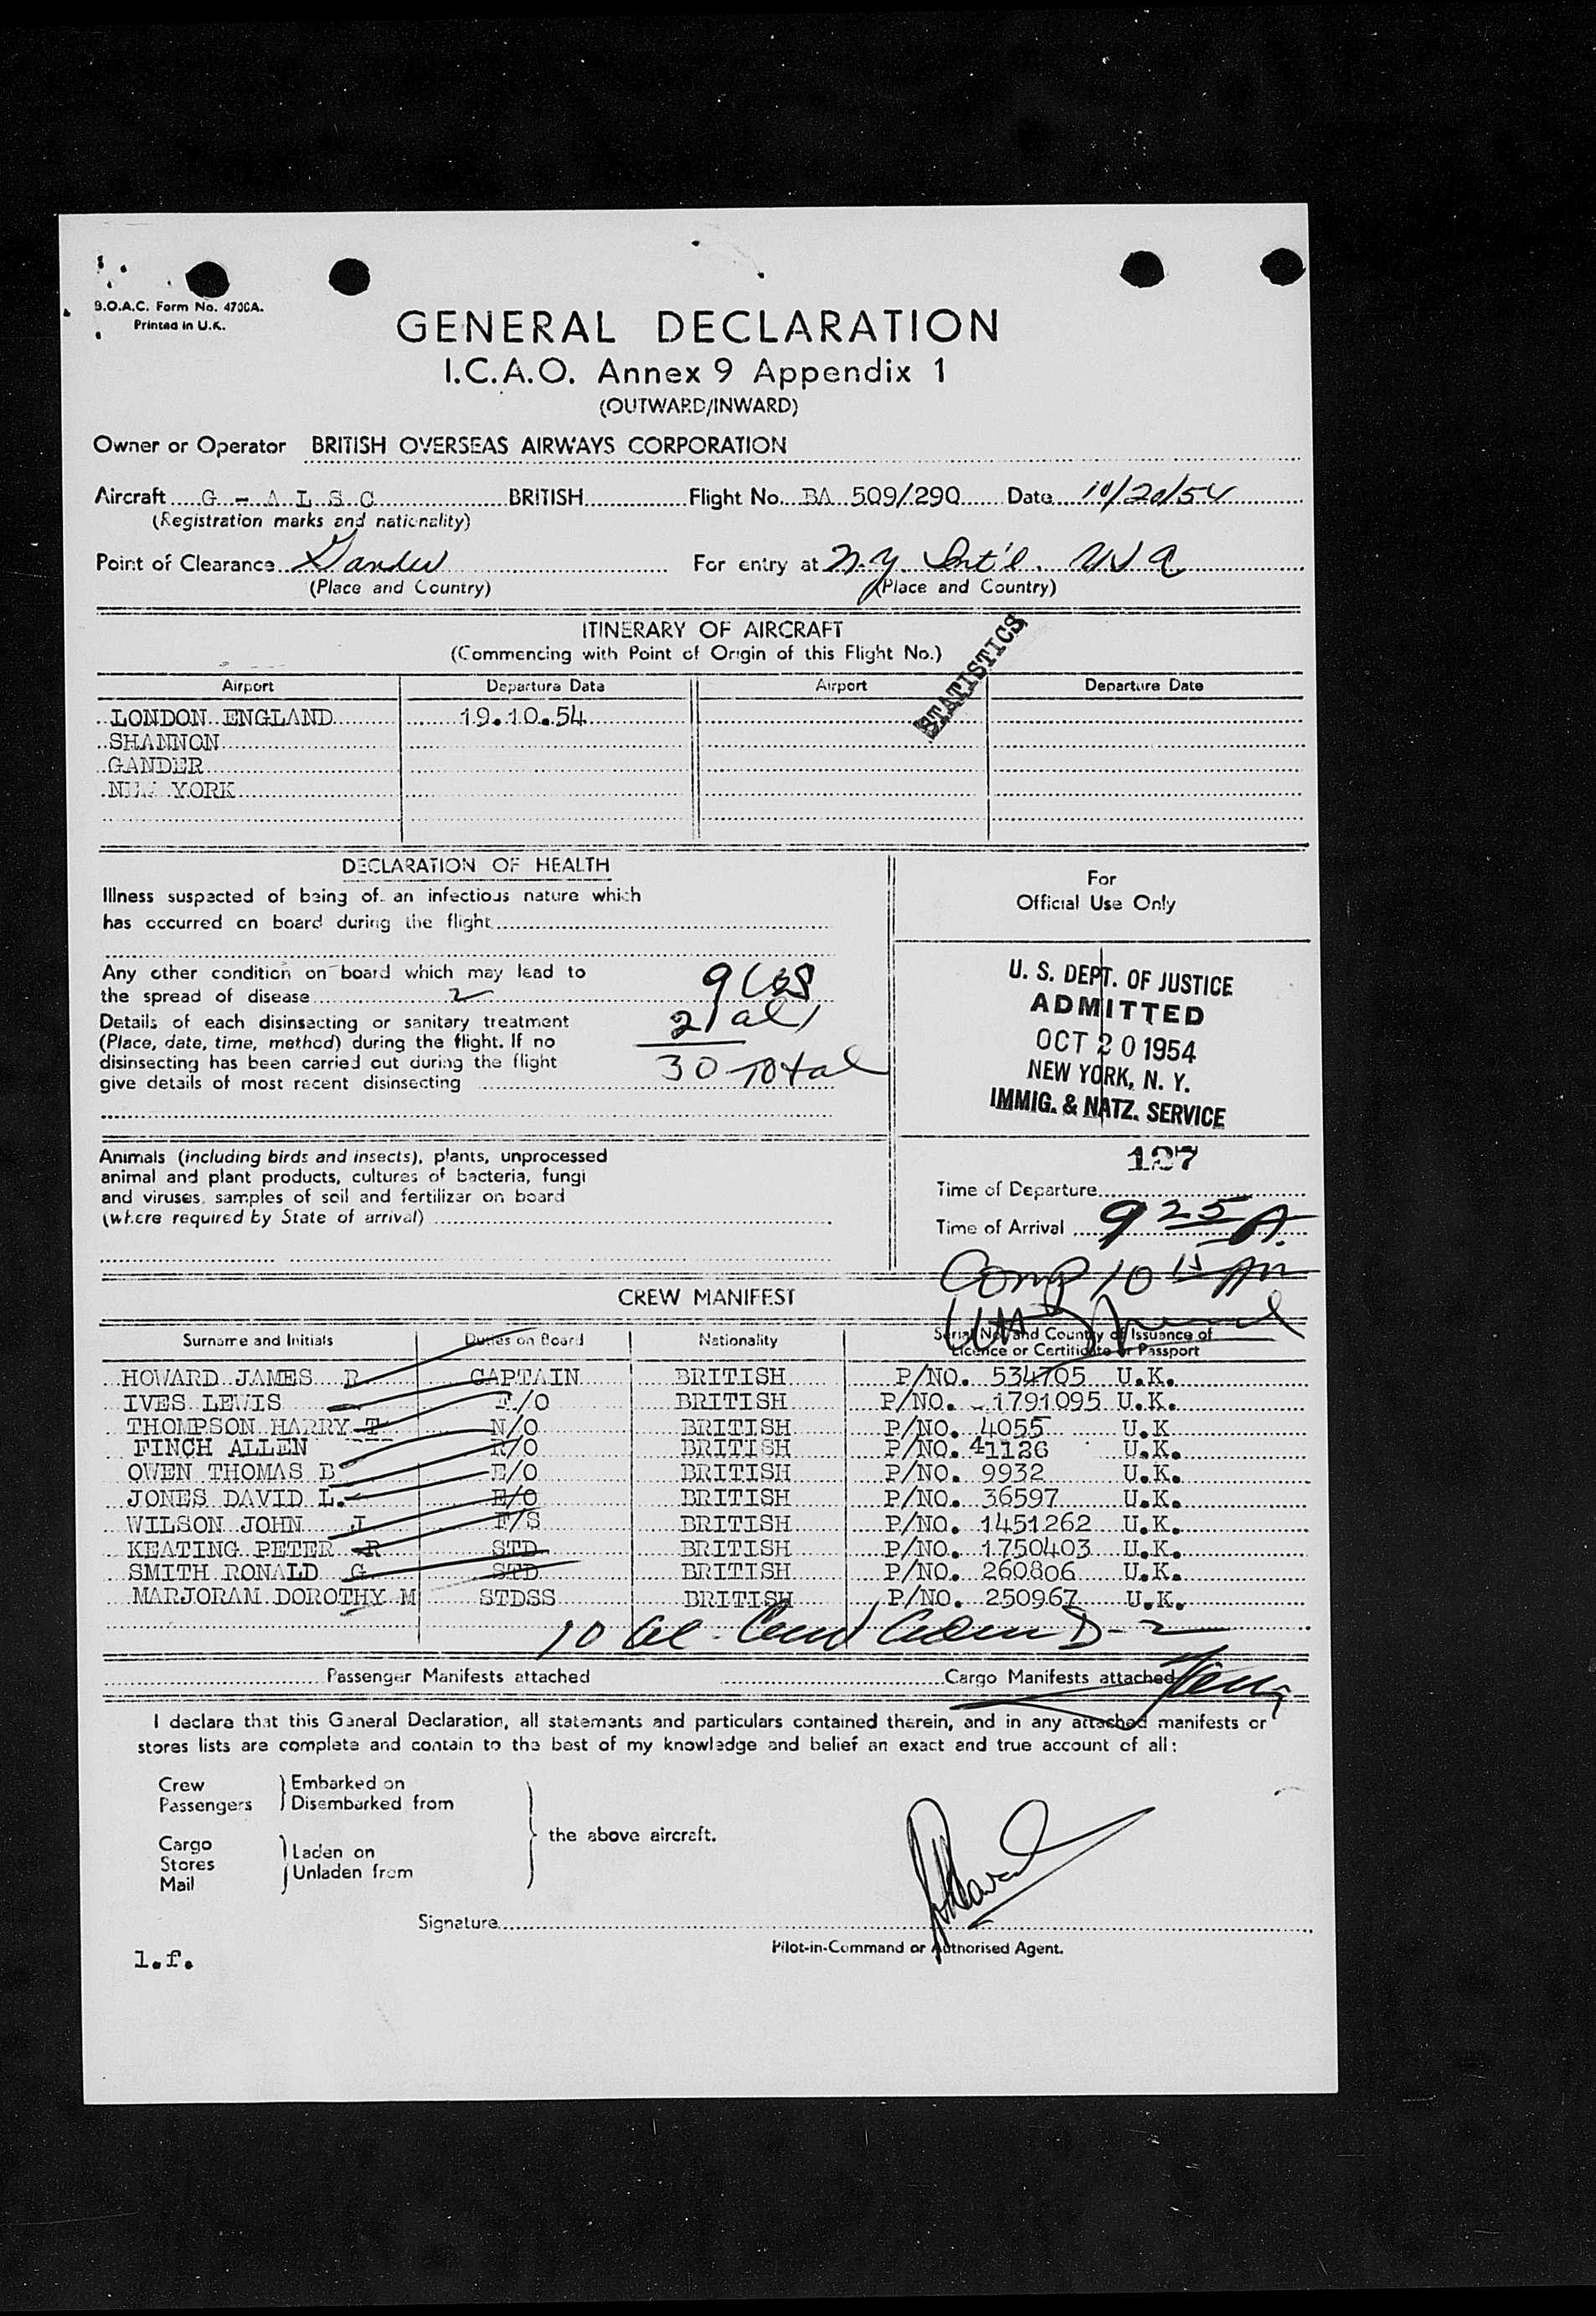 B.O.A.C. Form No. 4700A.
Printed in U.K.
GENERAL DECLARATION
I.C.A.O. Annex 9 Appendix 1
(OUTWARD/INWARD)
Owner or Operator BRITISH OVERSEAS AIRWAYS CORPORATION
Aircraft G - A L S C BRITISH Flight No. BA 509/290 Date 10/20/54
(Registration marks and nationality)
Point of Clearance Gander For entry at N.Y. Int'l. USA
(Place and Country) (Place and Country)
STATISTICS
ITINERARY OF AIRCRAFT
(Commencing with Point of Origin of this Flight No.)
Airport Departure Date Airport Departure Date
LONDON ENGLAND 19.10.54
SHANNON
GANDER
NEW YORK
DECLARATION OF HEALTH
Illness suspected of being of an infectious nature which
has occurred on board during the flight
Any other condition on board which may lead to
the spread of disease
Details of each disinsecting or sanitary treatment
(Place, date, time, method) during the flight. If no
disinsecting has been carried out during the flight
give details of most recent disinsecting
9 CoS
21 al
30 Total
Animals (including birds and insects), plants, unprocessed
animal and plant products, cultures of bacteria, fungi
and viruses, samples of soil and fertilizer on board
(where required by State of arrival)
For
Official Use Only
U. S. DEPT. OF JUSTICE
ADMITTED
OCT 20 1954
NEW YORK, N. Y.
IMMIG. & NATZ. SERVICE
127
Time of Departure
Time of Arrival 9 25 A.
Comp 10 15 AM
CREW MANIFEST
Surname and Initials Duties on Board Nationality Serial No. and Country of Issuance of
Licence or Certificate or Passport
HOWARD JAMES R CAPTAIN BRITISH P/NO. 534705 U.K.
IVES LEWIS F/O BRITISH P/NO. 1791095 U.K.
THOMPSON HARRY T N/O BRITISH P/NO. 4055 U.K
FINCH ALLEN R/O BRITISH P/NO. 41126 U.K.
OWEN THOMAS B E/O BRITISH P/NO. 9932 U.K.
JONES DAVID L. E/O BRITISH P/NO. 36597 U.K.
WILSON JOHN J F/S BRITISH P/NO. 1451262 U.K.
KEATING PETER R STD BRITISH P/NO. 1750403 U.K.
SMITH RONALD G STD BRITISH P/NO. 260806 U.K.
MARJORAM DOROTHY M STDSS BRITISH P/NO. 250967 U.K.
10 al. D-2
Passenger Manifests attached Cargo Manifests attached
I declare that this General Declaration, all statements and particulars contained therein, and in any attached manifests or
stores lists are complete and contain to the best of my knowledge and belief an exact and true account of all:
Crew
Passengers
Embarked on
Disembarked from
Cargo
Stores
Mail
Laden on
Unladen from
the above aircraft.
Signature
Pilot-in-Command or Authorised Agent.
l.f.